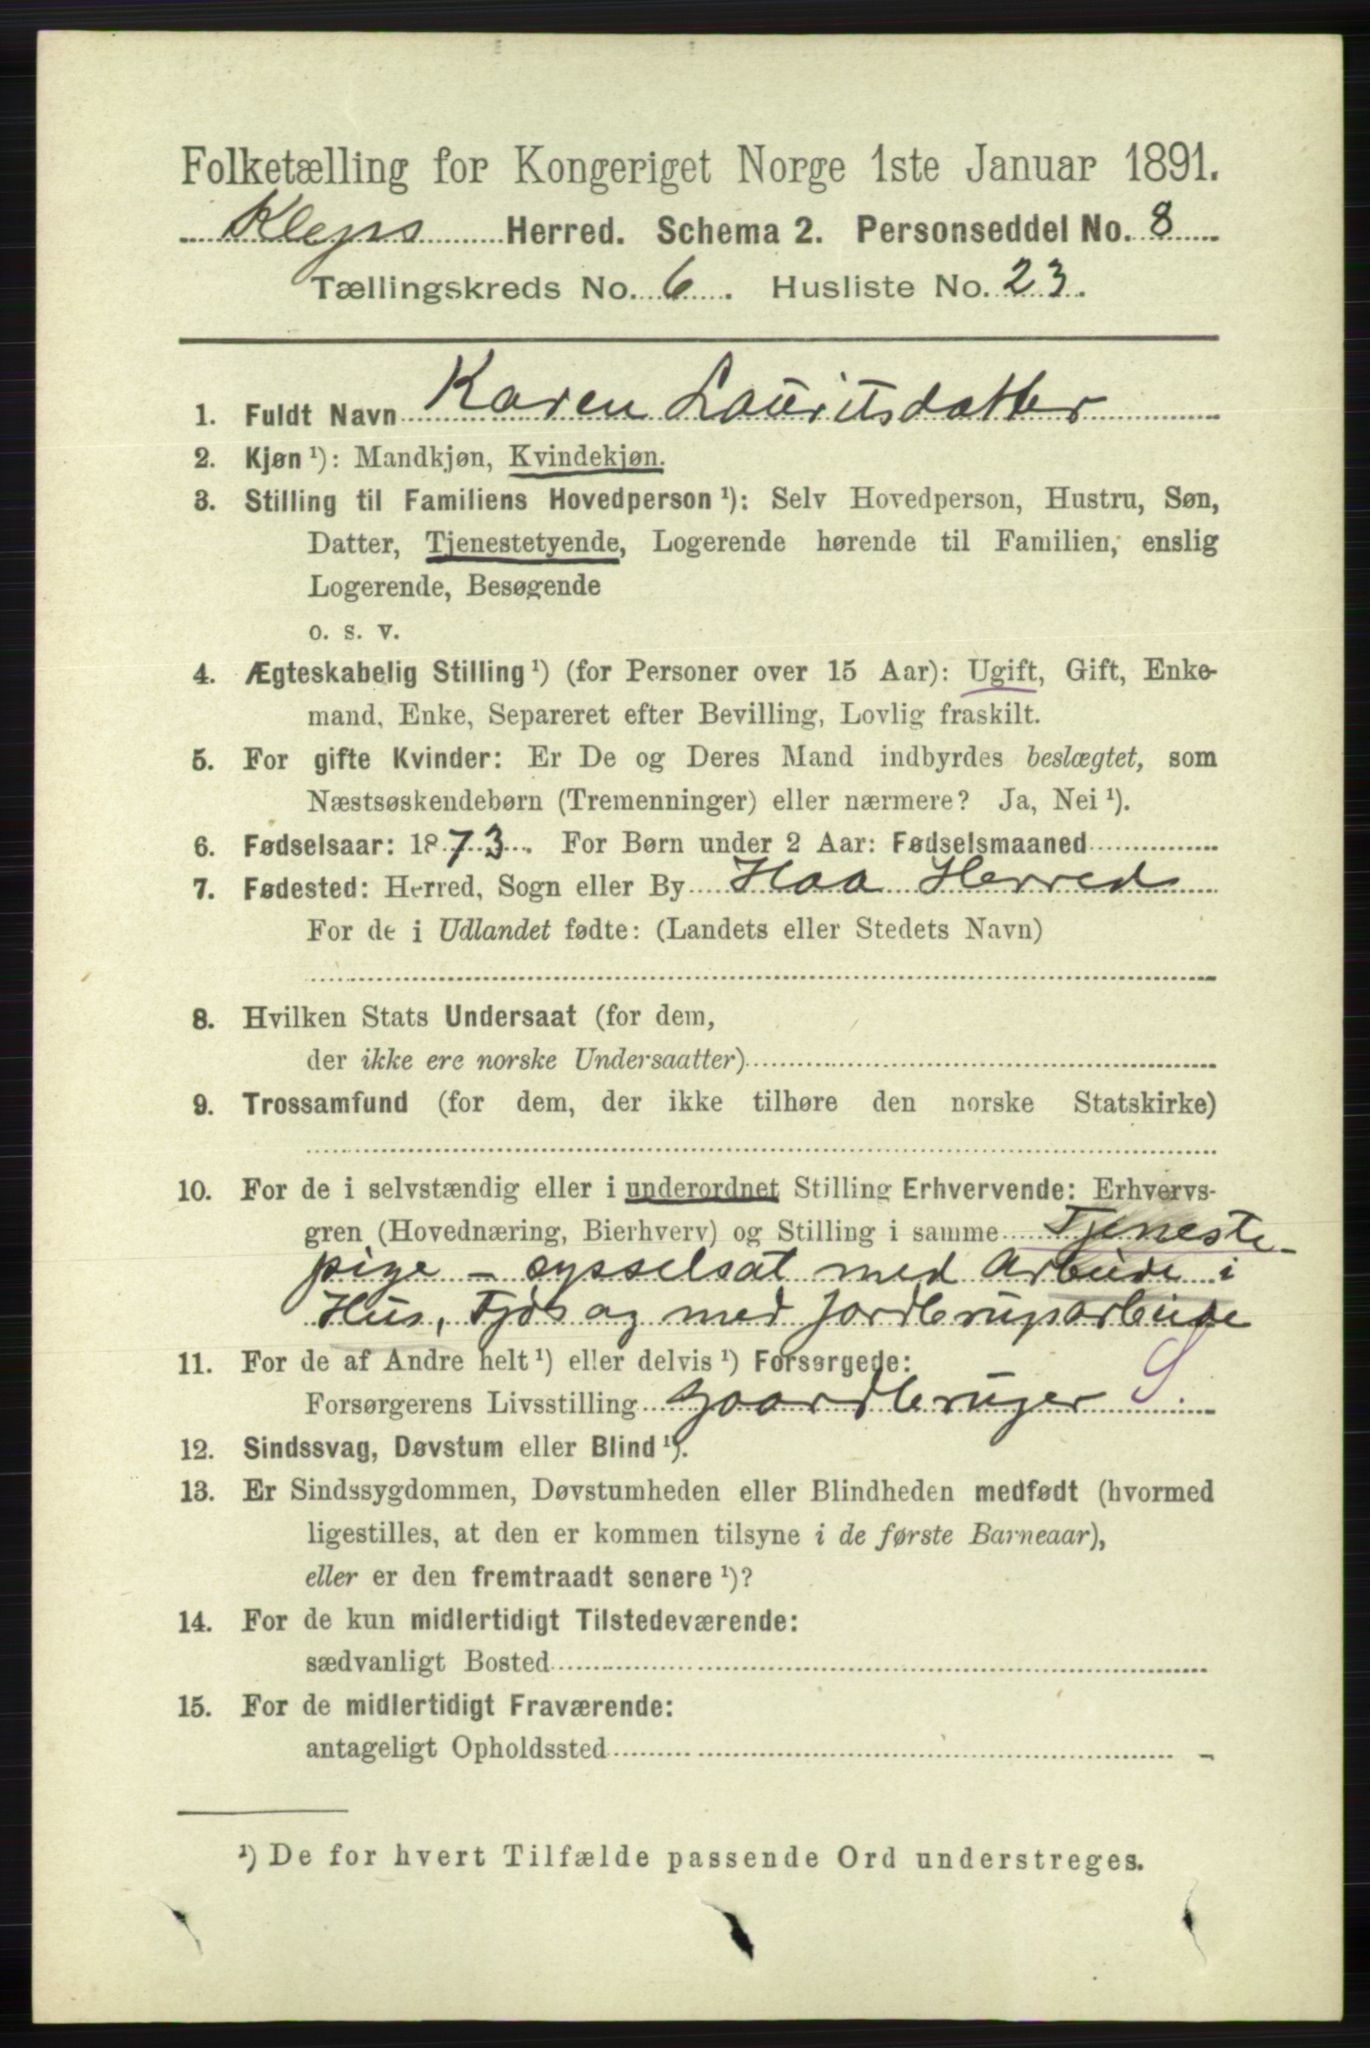 Folketælling for Kongeriget Norge 1ste Januar 1891.
Kleps Herred. Schema 2. Personseddel No. 8
Tællingskreds No. 6. Husliste No. 23.
1. Fuldt Navn Karen Lauritsdatter
2. Kjøn ¹): Mandkjøn, Kvindekjøn.
3. Stilling til Familiens Hovedperson ¹): Selv Hovedperson, Hustru, Søn,
Datter, Tjenestetyende, Logerende hørende til Familien, enslig
Logerende, Besøgende
o. s. v.
4. Ægteskabelig Stilling ¹) (for Personer over 15 Aar): Ugift, Gift, Enke-
mand, Enke, Separeret efter Bevilling, Lovlig fraskilt.
5. For gifte Kvinder: Er De og Deres Mand indbyrdes beslægtet, som
Næstsøskendebørn (Tremenninger) eller nærmere? Ja, Nei ¹).
6. Fødselsaar: 1873. For Børn under 2 Aar: Fødselsmaaned
7. Fødested: Herred, Sogn eller By Haa Herred
For de i Udlandet fødte: (Landets eller Stedets Navn)
8. Hvilken Stats Undersaat (for dem,
der ikke ere norske Undersaatter)
9. Trossamfund (for dem, der ikke tilhøre den norske Statskirke)
10. For de i selvstændig eller i underordnet Stilling Erhvervende: Erhvervs-
gren (Hovednæring, Bierhverv) og Stilling i samme Tjeneste-
pige - sysselsat med Arbeide i
Hus, Fjøs og med Jordbrugsarbeide
11. For de af Andre helt ¹) eller delvis ¹) Forsørgede:
Forsørgerens Livsstilling Gaardbruger S.
12. Sindssvag, Døvstum eller Blind ¹).
13. Er Sindssygdommen, Døvstumheden eller Blindheden medfødt (hvormed
ligestilles, at den er kommen tilsyne i de første Barneaar),
eller er den fremtraadt senere ¹)?
14. For de kun midlertidigt Tilstedeværende:
sædvanligt Bosted
15. For de midlertidigt Fraværende:
antageligt Opholdssted
¹) De for hvert Tilfælde passende Ord understreges.